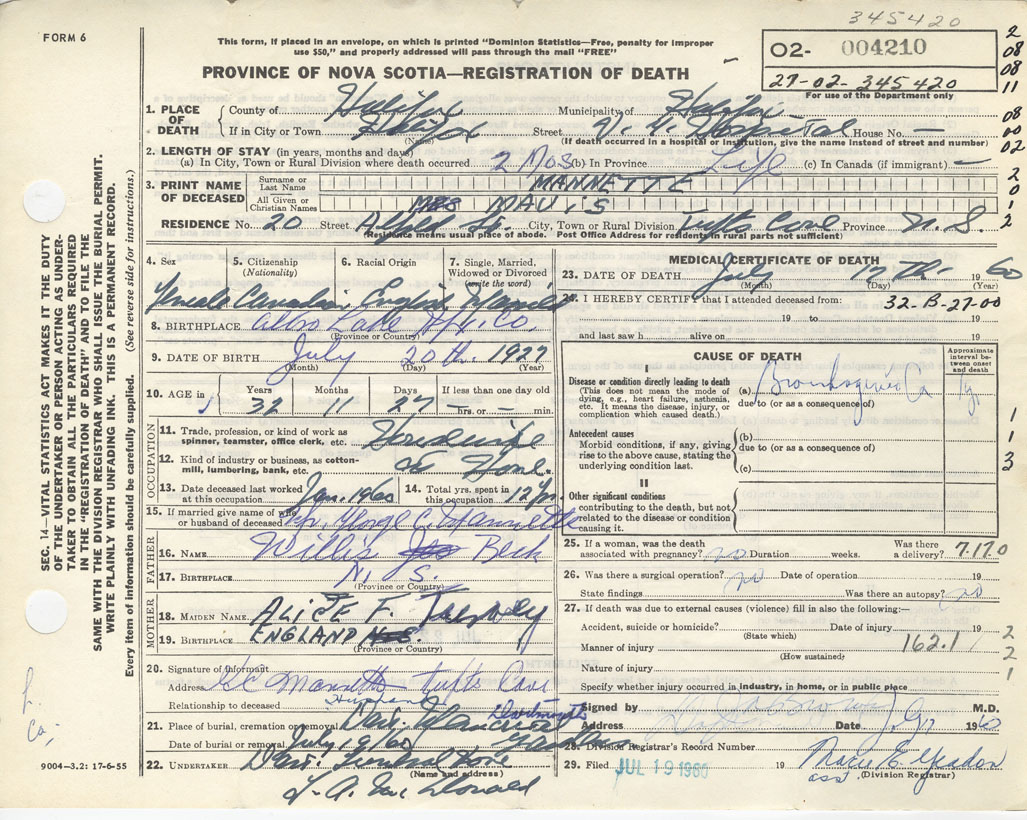 345420
FORM 6
This form, if placed in an envelope, on which is printed "Dominion Statistics—Free, penalty for improper
use $50," and properly addressed will pass through the mail "FREE"
O2- 004210
27-02-345420
For use of the Department only
PROVINCE OF NOVA SCOTIA—REGISTRATION OF DEATH
2
08
08
11
08
00
02
2
0
1
2
1
1
3
2
2
1
SEC. 14—VITAL STATISTICS ACT MAKES IT THE DUTY
OF THE UNDERTAKER OR PERSON ACTING AS UNDER-
TAKER TO OBTAIN ALL THE PARTICULARS REQUIRED
IN THE "REGISTRATION OF DEATH" AND FILE THE
SAME WITH THE DIVISION REGISTRAR WHO SHALL ISSUE THE BURIAL PERMIT.
WRITE PLAINLY WITH UNFADING INK. THIS IS A PERMANENT RECORD.
Every item of information should be carefully supplied. (See reverse side for instructions.)
1. PLACE OF DEATH County of Halifax Municipality of Halifax
If in City or Town Halifax Street V. G. Hospital House No. —
(Name) (If death occurred in a hospital or institution, give the name instead of street and number)
2. LENGTH OF STAY (in years, months and days)
(a) In City, Town or Rural Division where death occurred 2 Mos (b) In Province Life (c) In Canada (if immigrant) —
3. PRINT NAME OF DECEASED Surname or Last Name MANNETTE
All Given or Christian Names MRS MAVIS
RESIDENCE No. 20 Street St. City, Town or Rural Division Tufts Cove Province N. S.
(Residence means usual place of abode. Post Office Address for residents in rural parts not sufficient)
4. Sex 5. Citizenship (Nationality) 6. Racial Origin 7. Single, Married, Widowed or Divorced (write the word)
Female Canadian English Married
8. BIRTHPLACE Albro Lake Hfx. Co.
(Province or Country)
9. DATE OF BIRTH July 20th. 1927
(Month) (Day) (Year)
10. AGE in Years 32 Months 11 Days 27 If less than one day old — hrs. or — min.
OCCUPATION
11. Trade, profession, or kind of work as spinner, teamster, office clerk, etc. Housewife
12. Kind of industry or business, as cotton-mill, lumbering, bank, etc. at Home.
13. Date deceased last worked at this occupation Jan. 1960 14. Total yrs. spent in this occupation 12 yrs.
15. If married give name of wife or husband of deceased Mr. George C. Mannette
FATHER
16. NAME Willis Beck
17. BIRTHPLACE N. S.
(Province or Country)
MOTHER
18. MAIDEN NAME ALICE F.
19. BIRTHPLACE ENGLAND
(Province or Country)
20. Signature of Informant G C Mannette
Address Tufts Cove
Relationship to deceased Husband
Dartmouth
21. Place of burial, cremation or removal
Date of burial or removal July 19/60
22. UNDERTAKER Dart. Funeral Home
(Name and address)
MEDICAL CERTIFICATE OF DEATH
23. DATE OF DEATH July 17th 1960
(Month) (Day) (Year)
24. I HEREBY CERTIFY that I attended deceased from: 32-B-27-00
19 to 19
and last saw h alive on 19
CAUSE OF DEATH
Approximate interval between onset and death
I
Disease or condition directly leading to death
(This does not mean the mode of dying, e.g., heart failure, asthenia, etc. It means the disease, injury, or complication which caused death.)
(a) Bronchogenic Ca
due to (or as a consequence of)
Antecedent causes
Morbid conditions, if any, giving rise to the above cause, stating the underlying condition last.
(b)
due to (or as a consequence of)
(c)
II
Other significant conditions
contributing to the death, but not related to the disease or condition causing it.
25. If a woman, was the death associated with pregnancy? no Duration weeks. Was there a delivery? 7.17.0
26. Was there a surgical operation? no Date of operation 19
State findings Was there an autopsy? no
27. If death was due to external causes (violence) fill in also the following:—
Accident, suicide or homicide? Date of injury 19
(State which)
Manner of injury 162.1
(How sustained)
Nature of injury
Specify whether injury occurred in industry, in home, or in public place
Signed by M.D.
Address Date 1960
28. Division Registrar's Record Number
29. Filed JUL 19 1960 19
(Division Registrar)
9004—3.2: 17-6-55